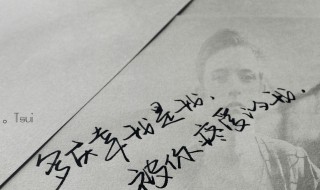 。Tsui
多庆幸我是我．
被你疼爱的我．